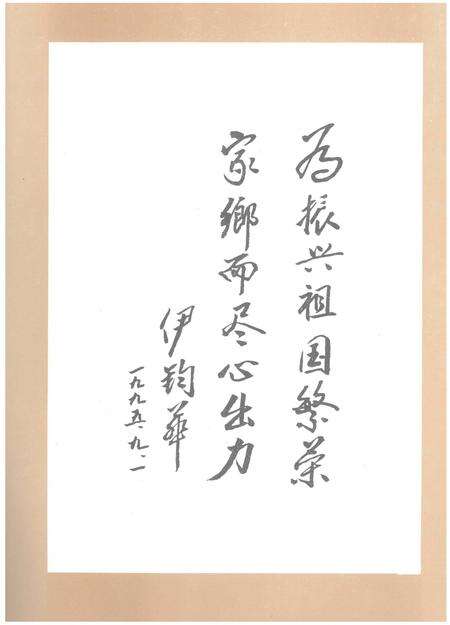 为振兴祖国繁荣
家鄉而尽心出力
伊鈞華
一九九五.九.一